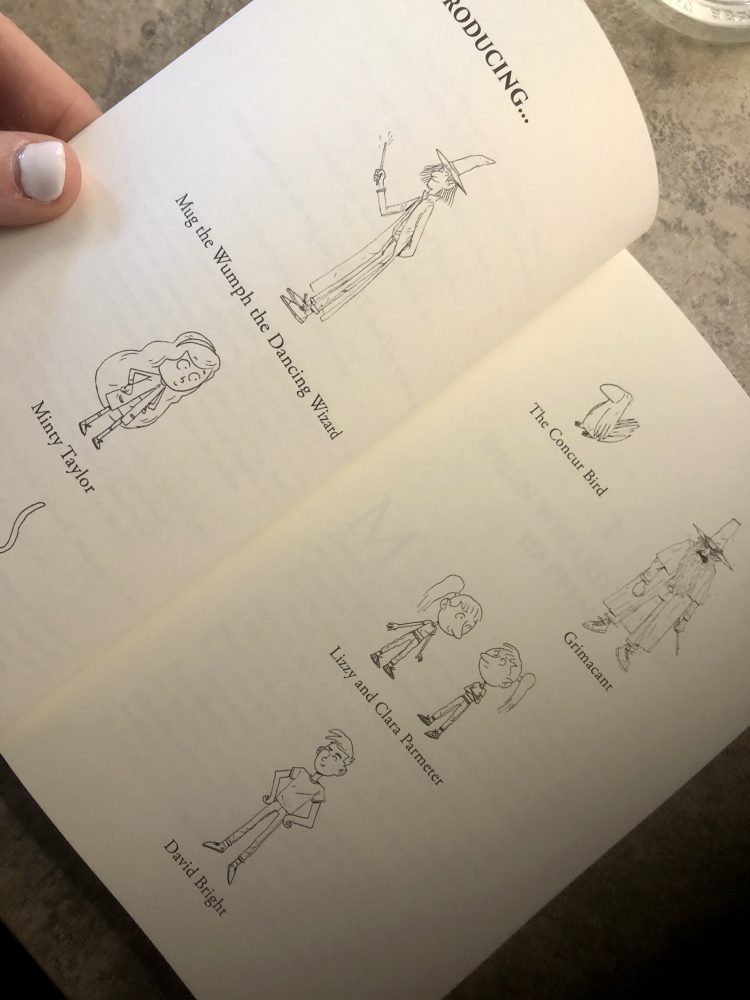 RODUCING...
Mug the Wumph the Dancing Wizard
Minty Taylor
The Concur Bird
Grimacant
Lizzy and Clara Parmeter
David Bright